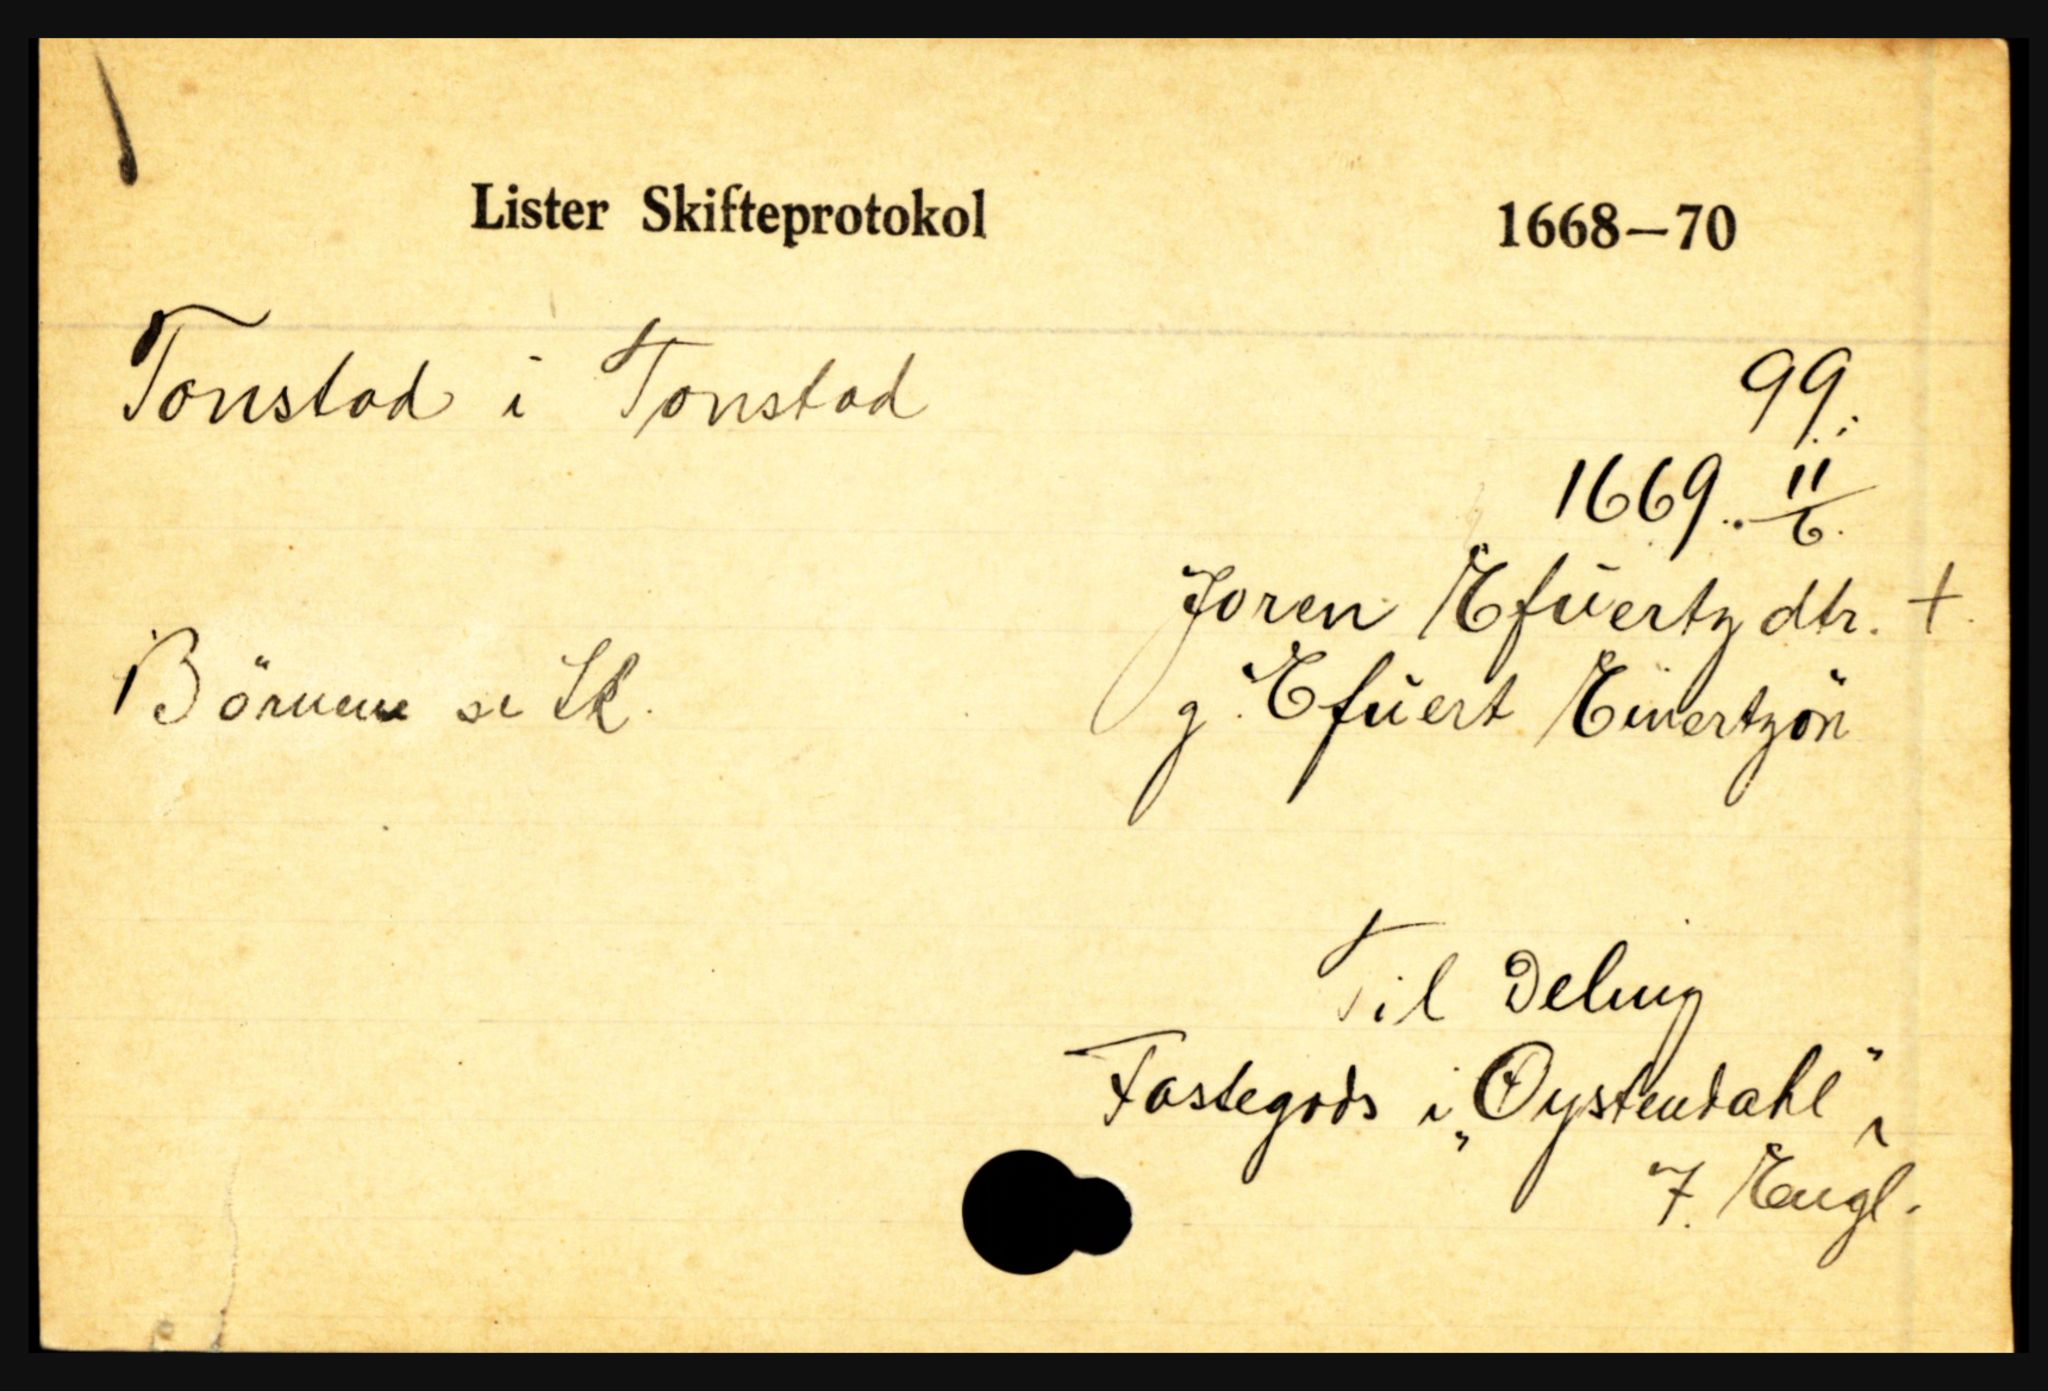 Lister Skifteprotokol 1668—70
Tonstad i Tonstad 99.
1669. 11/6.
Joren Efuertz dtr. +
Börnene se Sk. g. Efuert Euvertzön
Til Deling
Fastegods i „Oystendahl"
7. Engl.